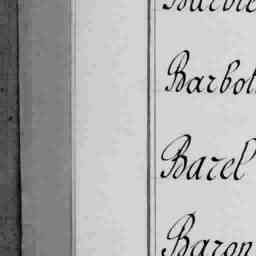 Barbot
Barel
Baron